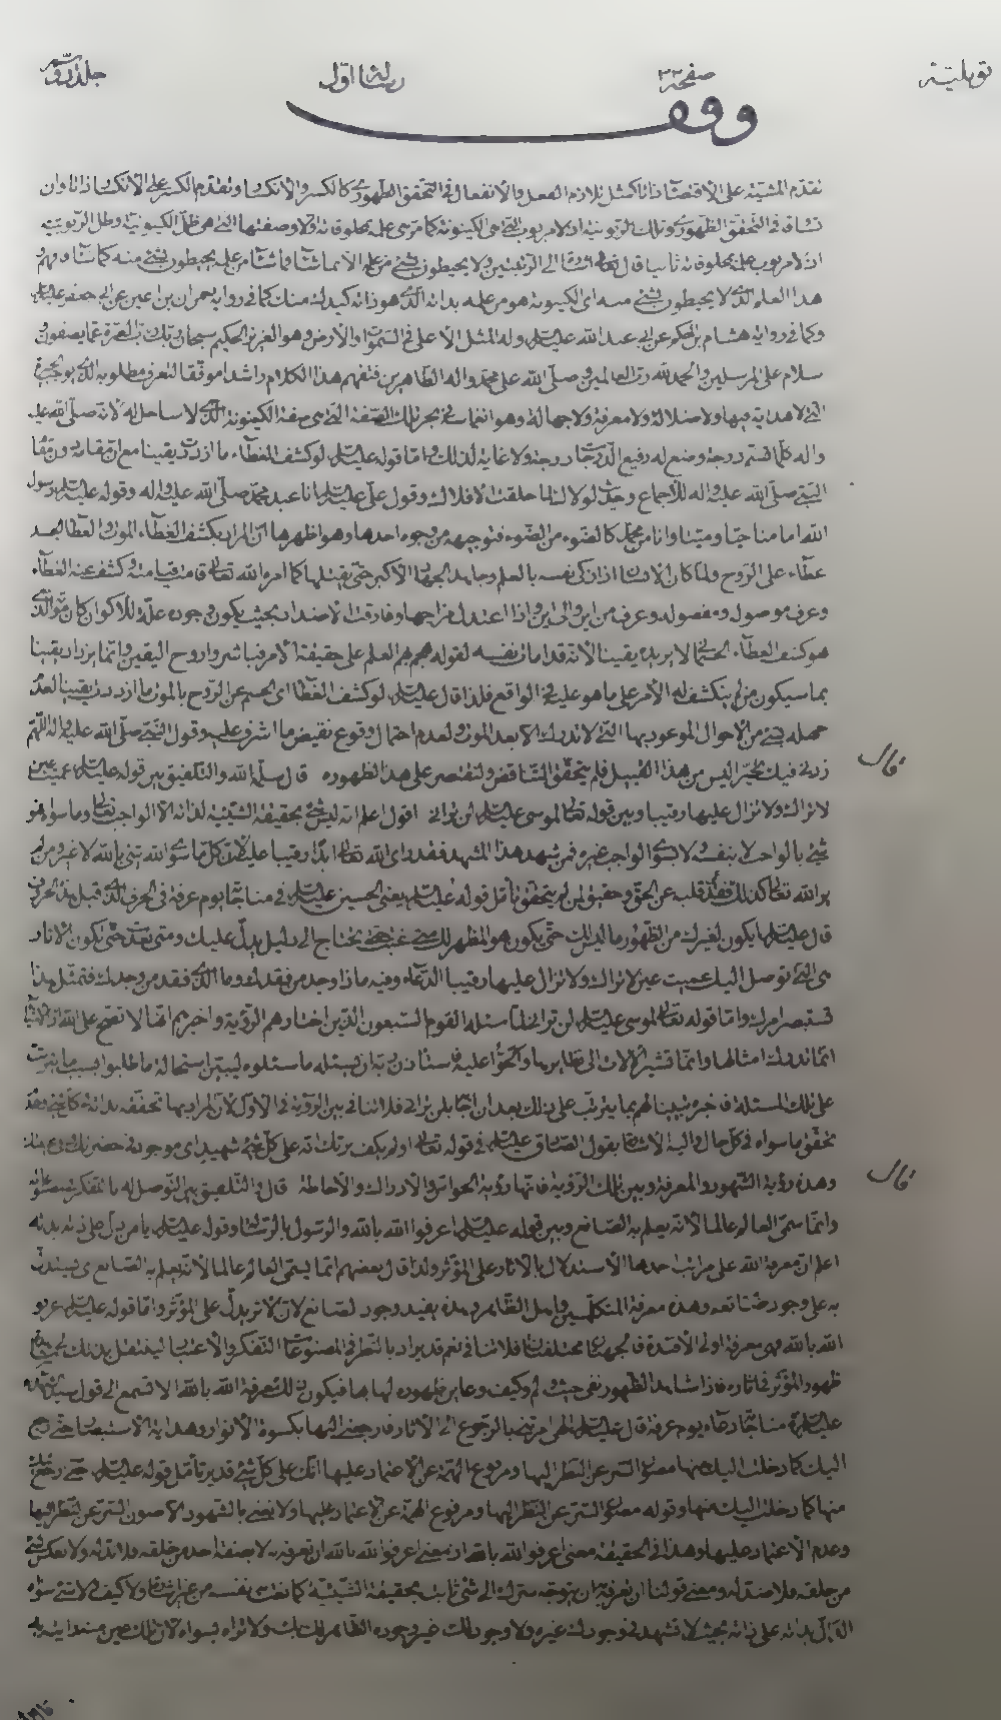 توبلية صفحة ٢٣ رسالة اول جلد
وقف
تقدم المشية على الاقتضاء ذاتا كمثل تلازم الفعل والانفعال في التحقق الظهوري كالكسر والانكسار وتقدم الكسر على الانكسار ذاتا وان
في التحقق الظهوري وتلك الربوبية اذ لا مربوب التي هي الكينونة كما مر هي علمه بمخلوقاته اولا وصفتها التي هي ظل الكينونة وظل الربوبية
اذ لا مربوب علمه بمخلوقاته ثانيا قال تعالى اشارة الى الرتبتين ولا يحيطون بشئ من علمه الا بما شاء فما شاء من علمه يحيطون بشئ منه كما شاء
هذا العلم الذي لا يحيطون بشئ منه اي الكينونة هو من علمه بذاته الذي هو ذاته كيدك منك كما في رواية حمران بن اعين عن ابي جعفر عليه السلام
وكما في رواية هشام بن الحكم عن ابي عبد الله عليه السلام وله المثل الاعلى في السموات والارض وهو العزيز الحكيم سبحان ربك رب العزة عما يصفون و
سلام على المرسلين والحمد لله رب العالمين وصلى الله على محمد واله الطاهرين فتفهم هذا الكلام راشدا موفقا لتعرف مطلوبه
التي لا هداية فيها ولا ضلالة ولا معرفة ولا جهالة وهو انغماسه في بحر تلك الصفة التي هي صفة الكينونة الذي لا ساحل له لانه صلى الله عليه
واله كلما قسم درجة وضع له رفيع الدرجات درجة ولا غاية لذلك واما قوله عليه السلام لو كشف الغطاء ما ازددت يقينا مع ان مقامه دون مقام
النبي صلى الله عليه واله للاجماع وحديث لولاك لما خلقت الافلاك وقول علي عليه السلام انا عبد محمد صلى الله عليه واله وقوله عليه السلام رسول
الله امامنا حيا وميتا وانا من محمد كالضوء من الضوء فتوجيهه من وجوه احدها وهو اظهرها ان المراد بكشف الغطاء الموت والغطاء الجسد
غطاء على الروح ولما كان الانسان اذا زكى نفسه بالعلم وجاهد الجهاد الاكبر حتى يقتلها كما امره الله تعالى قامت قيامته وكشف عنه الغطاء
وعرف موصوله ومفصوله وعرف من اين والى اين واذا اعتدل مزاجها وفارقت الاضداد بحيث يكون وجوده علة للاكوان كان موته الذي
هو كشف الغطاء الجسماني لا يزيده يقينا لانه قد امات نفسه لقوله هجم بهم العلم على حقيقة الامر فباشروا روح اليقين وانما يزداد يقينا
بما سيكون من لم ينكشف له الامر على ما هو عليه في الواقع فلذا قال عليه السلام لو كشف الغطاء اي الجسم عن الروح بالموت ما ازددت يقينا لعدم
جهله بشئ من الاحوال الموعود بها التي لا تدرك الا بعد الموت ولعدم احتمال وقوع نقيض ما اشرف عليه وقول النبي صلى الله عليه واله اللهم
زدني فيك تحيرا ليس من هذا القبيل فلم يتحقق التناقض ولنقتصر على هذا لظهوره قال سلمه الله والتلفيق بين قوله عليه السلام عميت عين
قال
لا تراك ولا تزال عليها رقيبا وبين قوله تعالى لموسى عليه السلام لن تراني اقول اعلم انه ليس شئ بحقيقة الشيئية لذاته الا الواجب تعالى وما سواه فهو
شئ بالواجب لا بنفسه ولا بسوى الواجب غيره فمن شهد هذا المشهد فقد راى الله تعالى ابدا رقيبا عليه لان كل ما سوى الله شئ بالله لا غير ومن لم
ير الله تعالى كذلك فقد قلبه عن الحق وحقيق لمن لم يتحقق تأمل قوله عليه السلام يعني الحسين عليه السلام في مناجاة يوم عرفة في الحرف الذي قبل هذا الحرف
قال عليه السلام ايكون لغيرك من الظهور ما ليس لك حتى يكون هو المظهر لك متى غبت حتى تحتاج الى دليل يدل عليك ومتى بعدت حتى تكون الاثار
هي التي توصل اليك عميت عين لا تراك ولا تزال عليها رقيبا الدعاء وفيه ماذا وجد من فقدك وما الذي فقد من وجدك فتمثل بهذا
تستبصر امرك واما قوله تعالى لموسى عليه السلام لن تراني لما سئله القوم السبعون الذين اختارهم الرؤية واخبرهم انها لا تصح على الله
انما تدرك امثالها وانما تشير الالات الى نظائرها والحوا عليه فاستأذن ربه ان يسئله ما سئلوه ليبين استحالة ما طلبوا بسبب ما يترتب
على تلك المسئلة فاخبره تبيينا لهم بما يترتب على ذلك بعد ان اجابه لن تراني فلا تنافي بين الرؤية في الاول لان المراد بها تحققه بذاته كل شئ وقد
تحقق ما سواه في كل حال واليه الاشارة بقول الصادق عليه السلام في قوله تعالى اولم يكف بربك انه على كل شئ شهيد اي موجود في حضرتك
وهذه رؤية الشهود والمعرفة وبين تلك الرؤية فانها رؤية الحواس والادراك والاحاطة قال والتلفيق بين التوصل له بالتفكر في مصنوعاته
قال
وانما سمي العالم عالما لانه يعلم به الصانع وبين قوله عليه السلام اعرفوا الله بالله والرسول بالرسالة وقوله عليه السلام يا من دل على ذاته بذاته
اعلم ان معرفة الله على مراتب احدها الاستدلال بالاثار على المؤثر ولذا قال بعضهم انما سمي العالم عالما لانه يعلم به الصانع اي يستدل
به على وجود صانعه وهذه معرفة المتكلمين واهل الظاهر وهذه يفيد وجود الصانع لان الاثر يدل على المؤثر واما قوله عليه السلام اعرفوا
الله بالله فهي معرفة اولي الافئدة فالجهتان مختلفتان فلا تنافي نعم قد يراد بالنظر في المصنوعات التفكر والاعتبار لينتقل بذلك
ظهور المؤثر في اثاره فاذا شاهد الظهور نفى حيث ولم وكيف وعاين ظهوره لها بها فيكون تلك معرفة الله بالله الا تسمع الى قول سيد الشهداء
عليه السلام في مناجاة دعاء يوم عرفة قال عليه السلام الهي امرتني بالرجوع الى الاثار فارجعني اليها بكسوة الانوار وهداية الاستبصار حتى ارجع
اليك كما دخلت اليك منها مصون السر عن النظر اليها ومرفوع الهمة عن الاعتماد عليها انك على كل شئ قدير تأمل قوله عليه السلام حتى ارجع اليك
منها كما دخلت اليك منها وقوله مصون السر عن النظر اليها ومرفوع الهمة عن الاعتماد عليها ولا نعني بالشهود الا صون السر عن النظر اليها
وعدم الاعتماد عليها وهذا في الحقيقة معنى اعرفوا الله بالله اذ معنى اعرفوا الله بالله ان تعرفه لا بصفة احد من خلقه فلا ند له ولا بعكس شئ
من خلقه فلا ضد له ومعنى قولنا ان تعرفه ان يتوجه سرك الى شئ ثابت بحقيقة الشيئية كما نعت نفسه من غير اشارة ولا كيف لا شئ سواه
الدال بذاته على ذاته بحيث لا تشهد في وجودك غيره ولا وجود لك غير وجوده الظاهر لك بك ولا تراه بسواه لان تلك عين منه اريته به